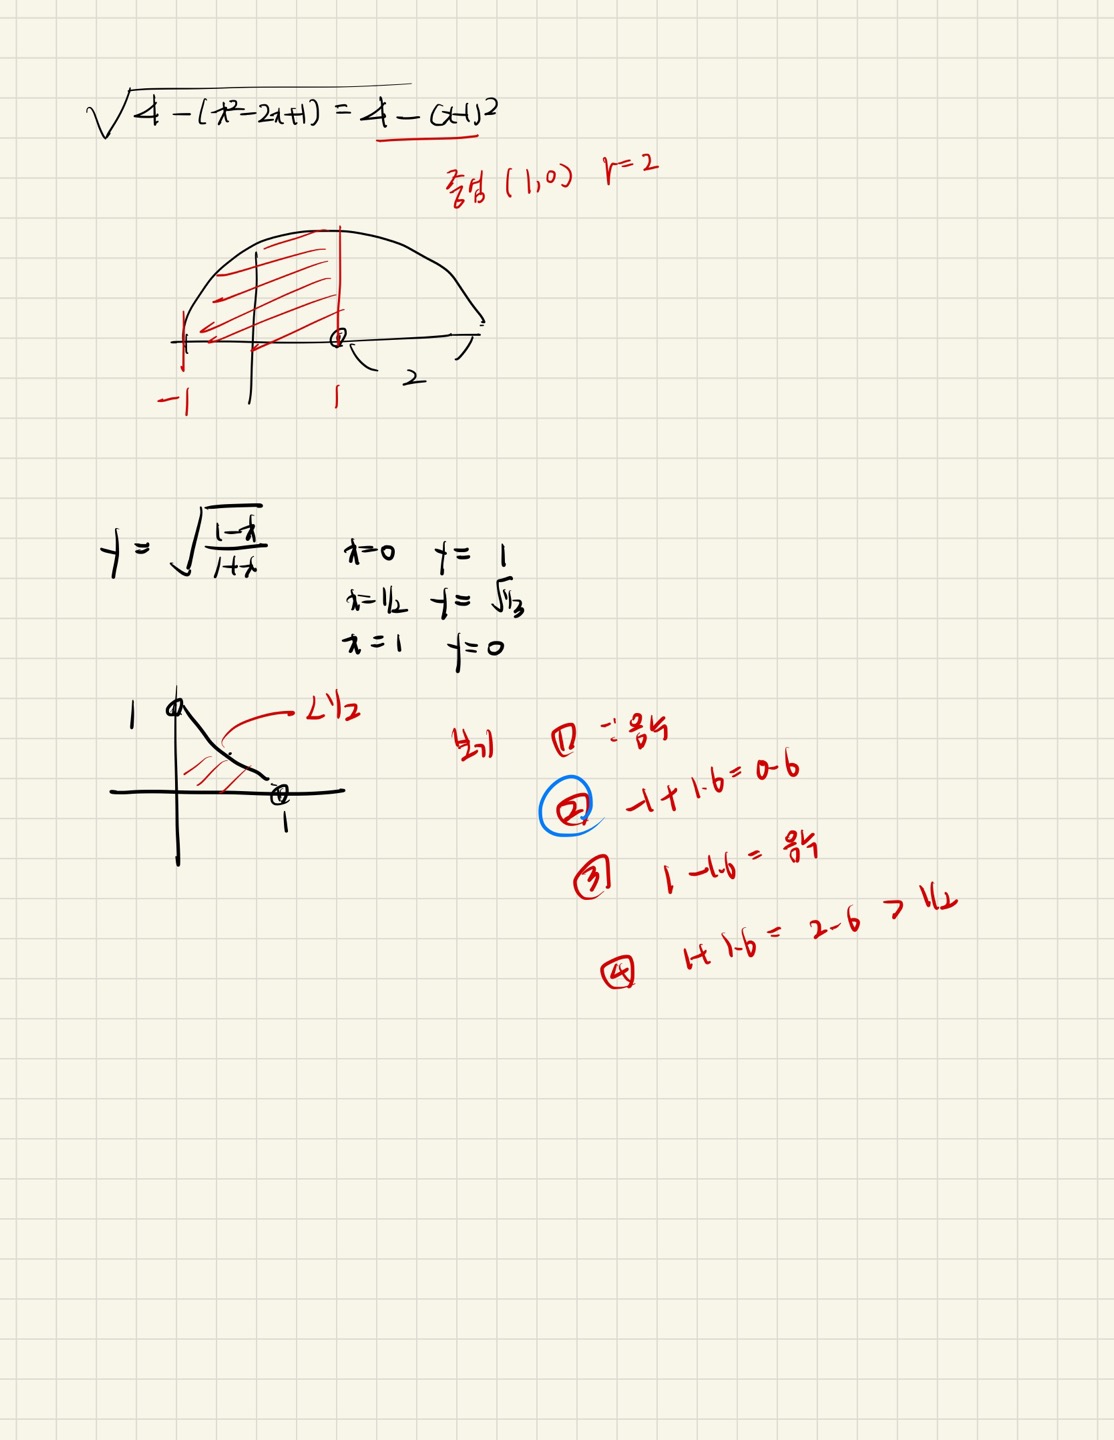 √4-(x²-2x+1) = 4-(x-1)²
중점 (1,0) r=2
2
-1 1
y = √(1-x)/(1+x)
x=0 y= 1
x=1/2 y= √1/3
x=1 y=0
1
<1/2
1
보기 ① 음수
② -1+1.6=0.6
③ 1-1.6= 음수
④ 1+1.6= 2.6 > 1/2